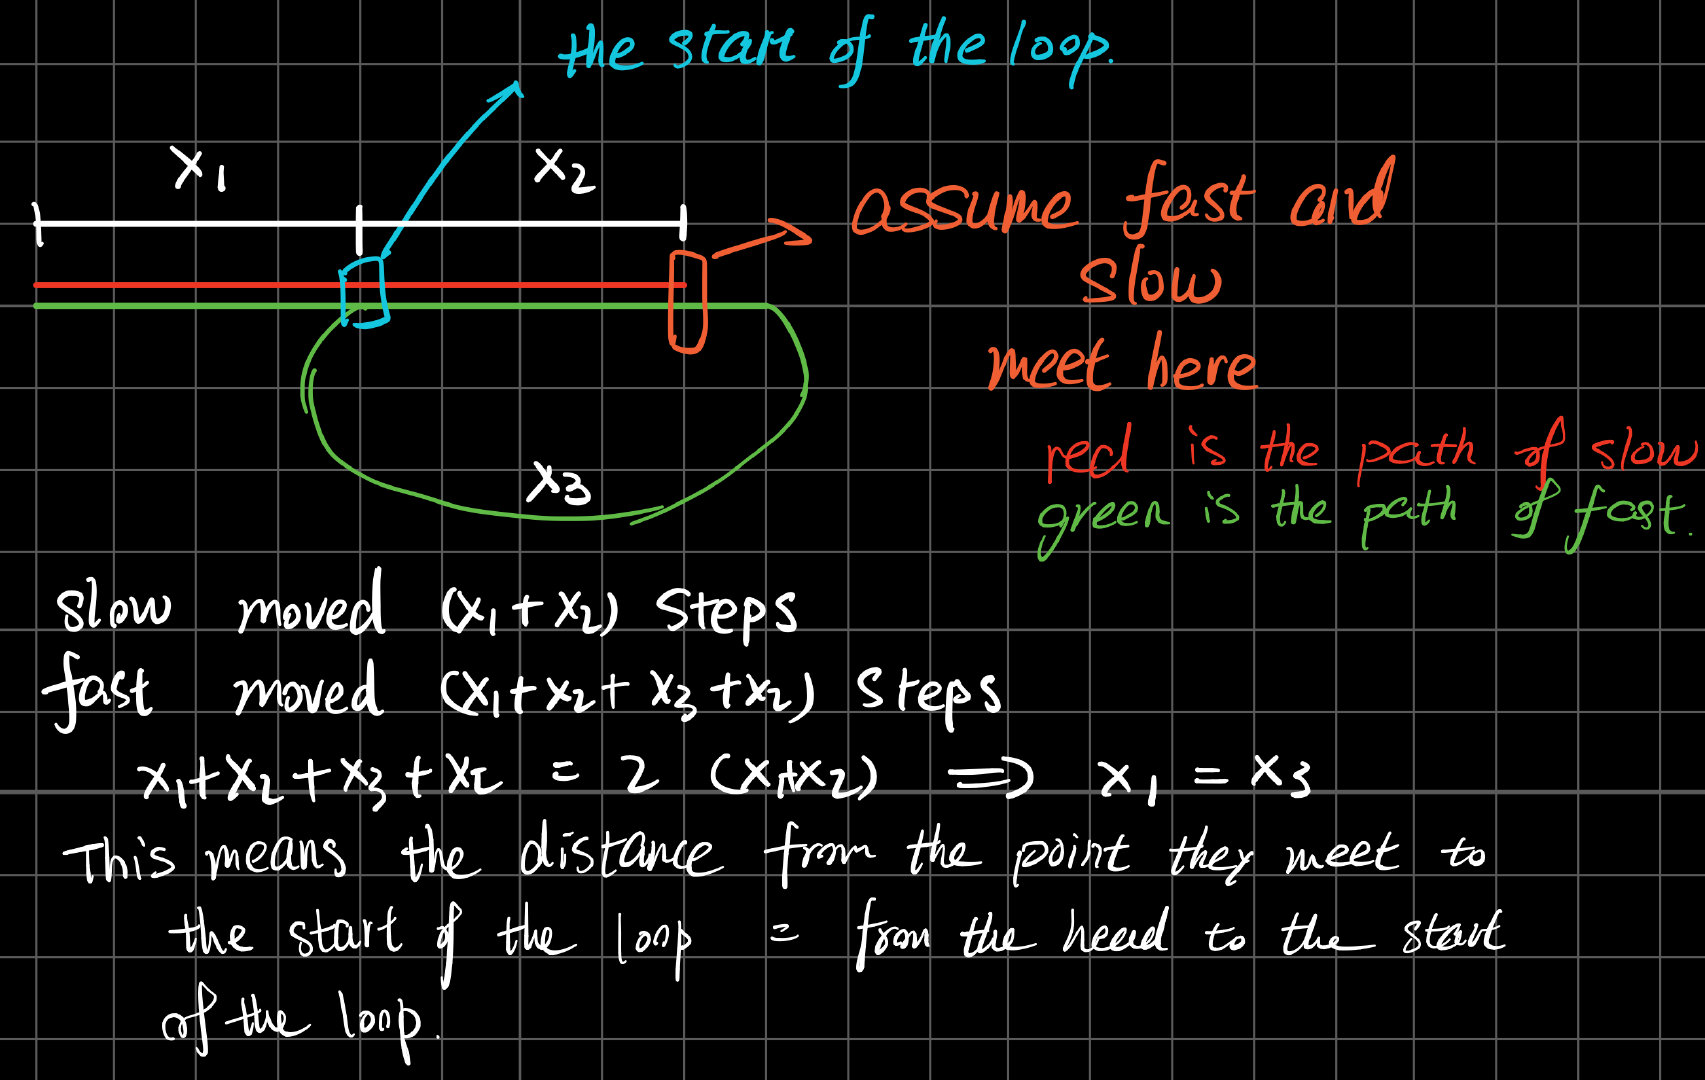 the start of the loop.
x₁ x₂
assume fast and
slow
meet here
red is the path of slow
green is the path of fast.
x₃
slow moved (x₁+x₂) steps
fast moved (x₁+x₂+x₃+x₂) steps
x₁+x₂+x₃+x₂ = 2 (x₁+x₂) ⟹ x₁ = x₃
This means the distance from the point they meet to
the start of the loop = from the head to the start
of the loop.